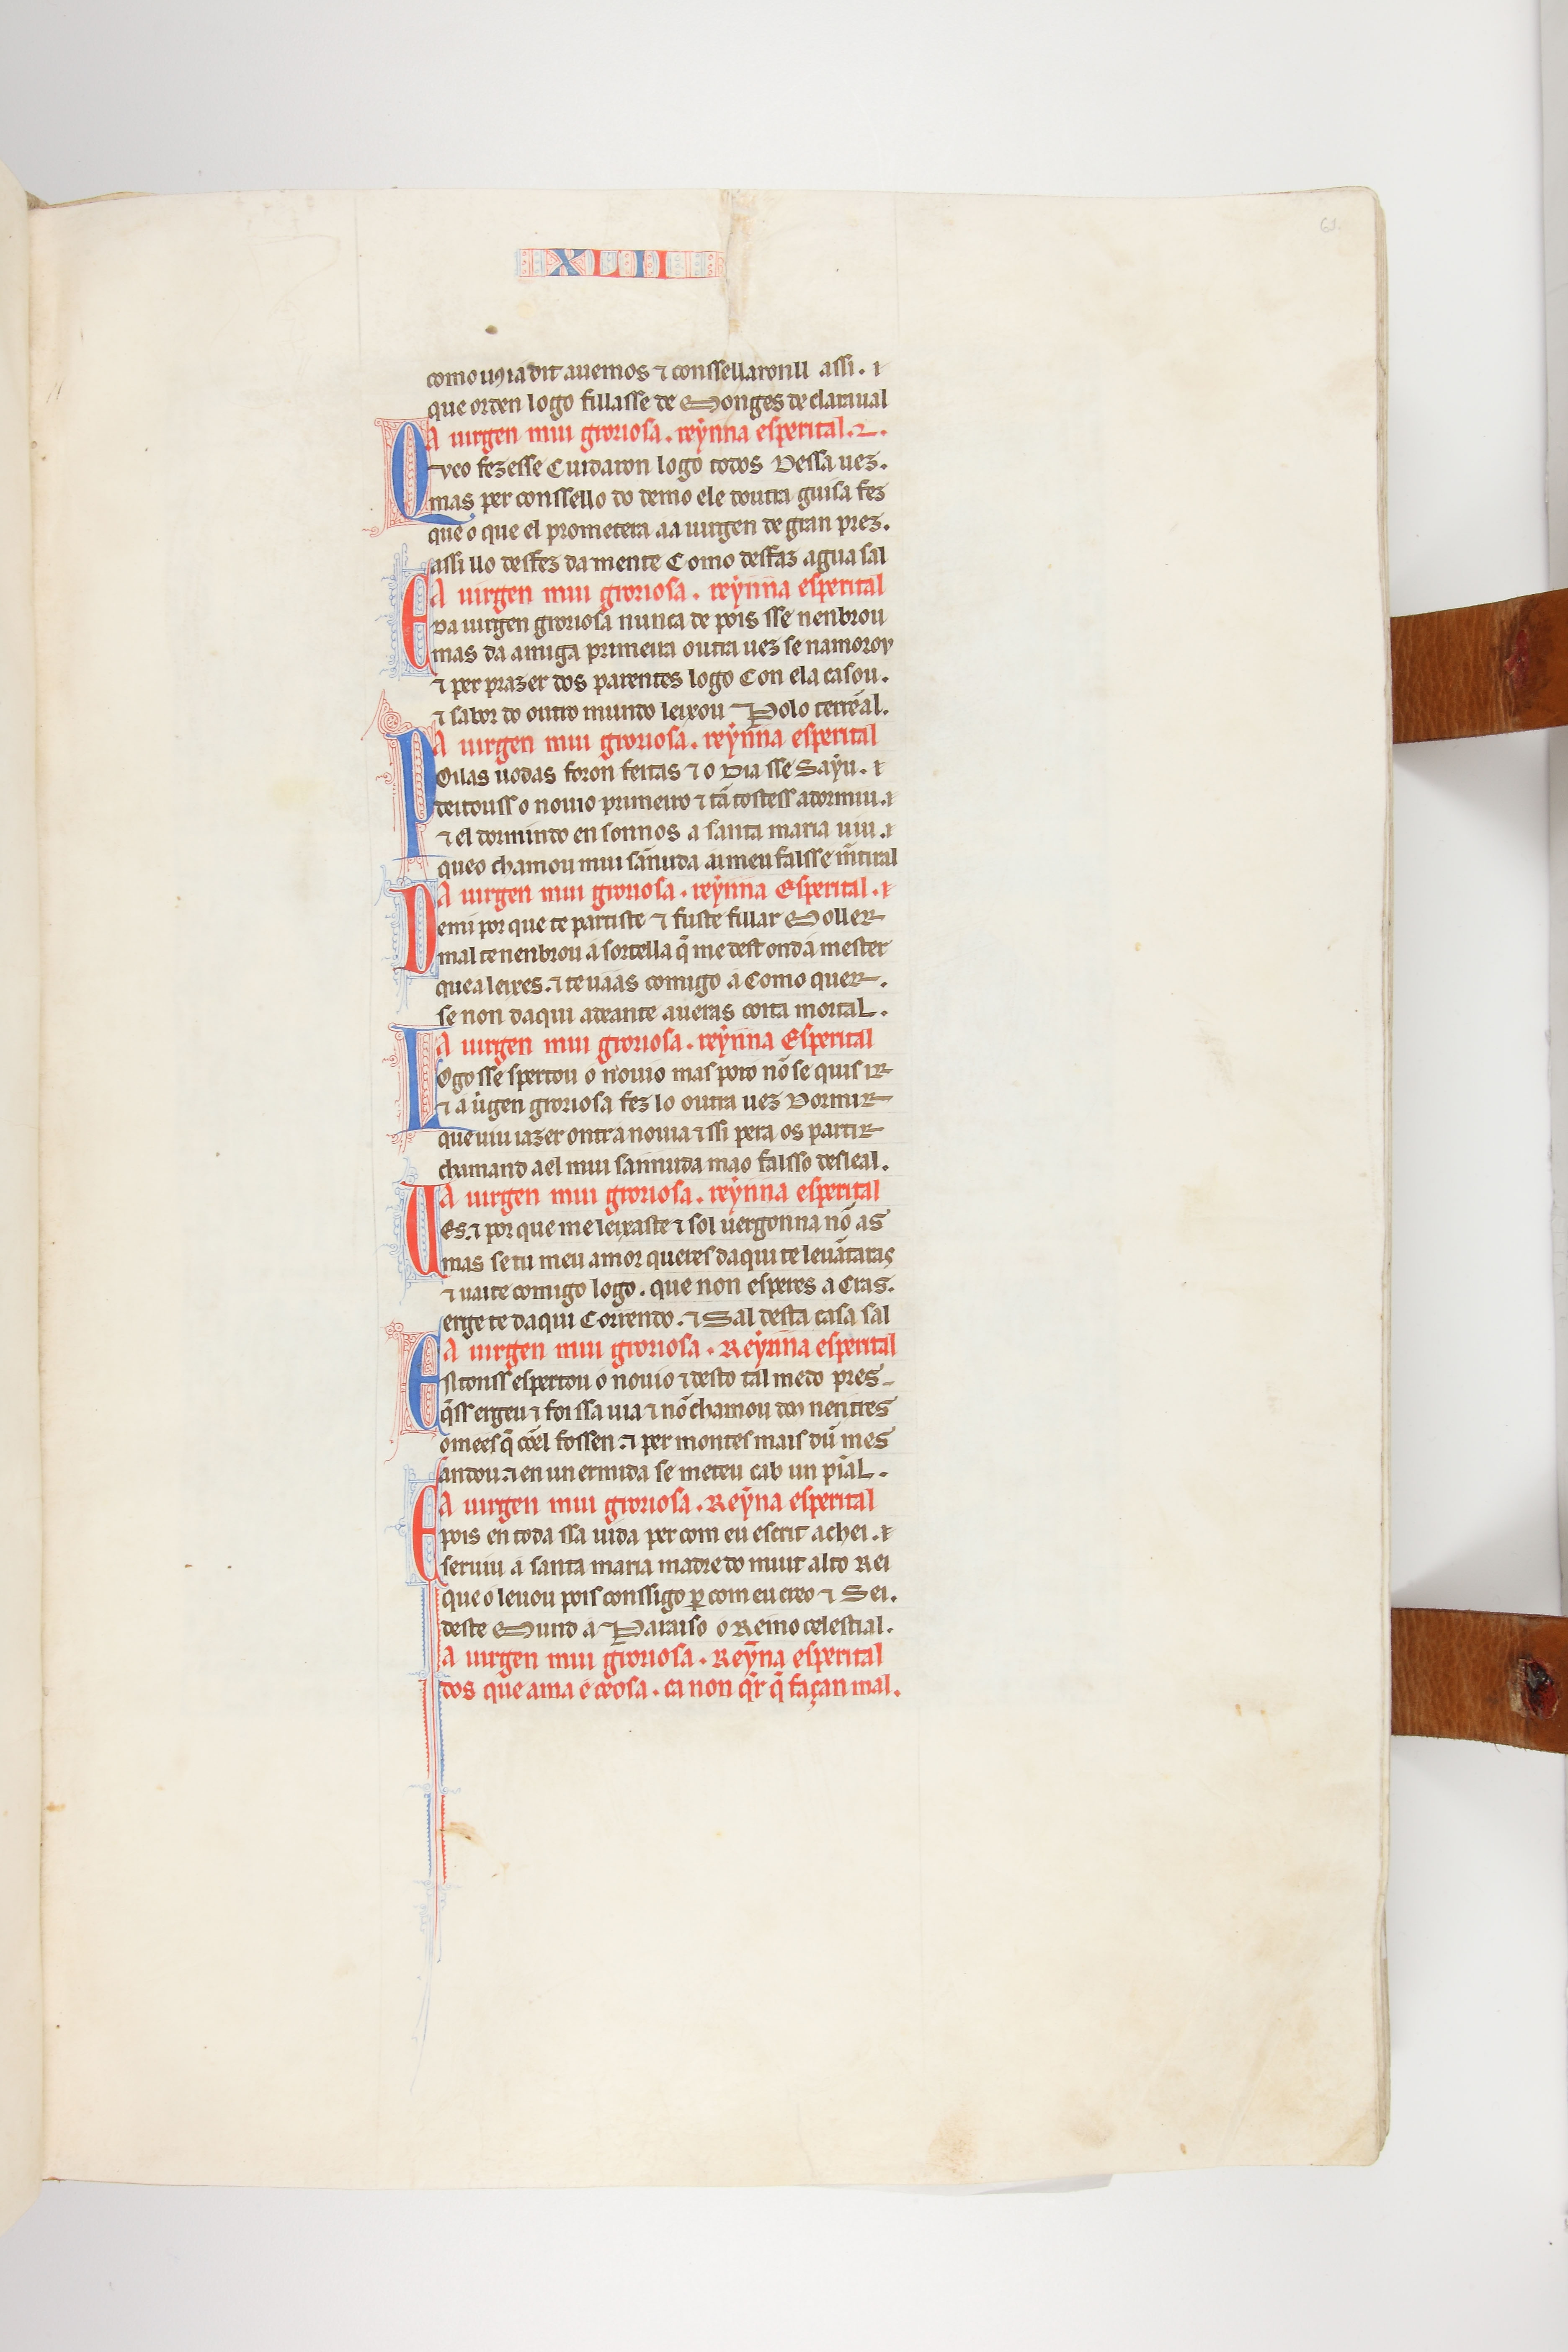 XLII
61.
como uꝯ ia dit auemos ⁊ conssellaronll assi. ⁊
que orden logo fillasse de Monges de claraual
A uirgen mui groriosa. reẏnna esperital. ⁊.
Queo fezesse Cuidaron logo todos Dessa uez.
mas per conssello do demo ele doutra guisa fez
que o que el prometera aa uirgen de gran prez.
assi llo desfez da mente Como desfaz agua sal
A uirgen mui groriosa. reẏnna esperital
E da uirgen groriosa nunca de pois sse nenbrou
mas da amiga primeira outra uez se namoroy
⁊ per prazer dos parentes logo Con ela casou.
⁊ sabor do outro mundo leixou Polo terrẽal.
A uirgen mui groriosa. reẏnna esperital
Poilas uodas foron feitas ⁊ o Dia sse Saẏu. ⁊
deitouss o nouio primeiro ⁊ tã tostess adormiu. ⁊
⁊ el dormindo en sonnos a santa maria uiu. ⁊
queo chamou mui sãnuda ai meu falsse mẽtiral
A uirgen mui groriosa. reẏnna Esperital. ⁊
Demi por que te partiste ⁊ fuste fillar Moller
mal te nenbrou a sortella q̃ me dest ond a mester
que a leixes. ⁊ te uáás comigo a Como quer.
se non daqui adeante aueras coita mortal.
A uirgen mui groriosa. reẏnna Esperital
Logo sse spertou o nouio mas poro nõ se quis ir
⁊ a uirgen groriosa fez lo outra uez Dormir
que uiu iazer ontra nouia ⁊ ssi pera os partir
chamand a el mui sannuda mao falsso desleal.
A uirgen mui groriosa. reẏnna esperital
Ues. ⁊ por que me leixaste ⁊ sol uergonna nõ as
mas se tu meu amor queres daqui te leuãtaras
⁊ uai te comigo logo. que non esperes a Cras.
erge te daqui Correndo. ⁊ Sal desta casa sal
A uirgen mui groriosa. Reẏnna esperital
Entonss espertou o nouio ⁊ desto tal medo pres
q̃ss ergeu ⁊ foi ssa uia ⁊ nõ chamou dos nen tres
omees q̃ cõel fossen ⁊ per montes mais dũ mes
andou ⁊ en un ermida se meteu cab un pĩal.
A uirgen mui groriosa. Reẏna esperital
E pois en toda ssa uida per com eu escrit achei. ⁊
seruiu a santa maria madre do muit alto Rei
que o leuou pois conssigo ꝑ com eu creo ⁊ Sei.
deste Mund a Paraiso o Reino celestial.
A uirgen mui groriosa. Reẏna esperital
dos que ama é ceosa. ca non q̃r q̃ façan mal.